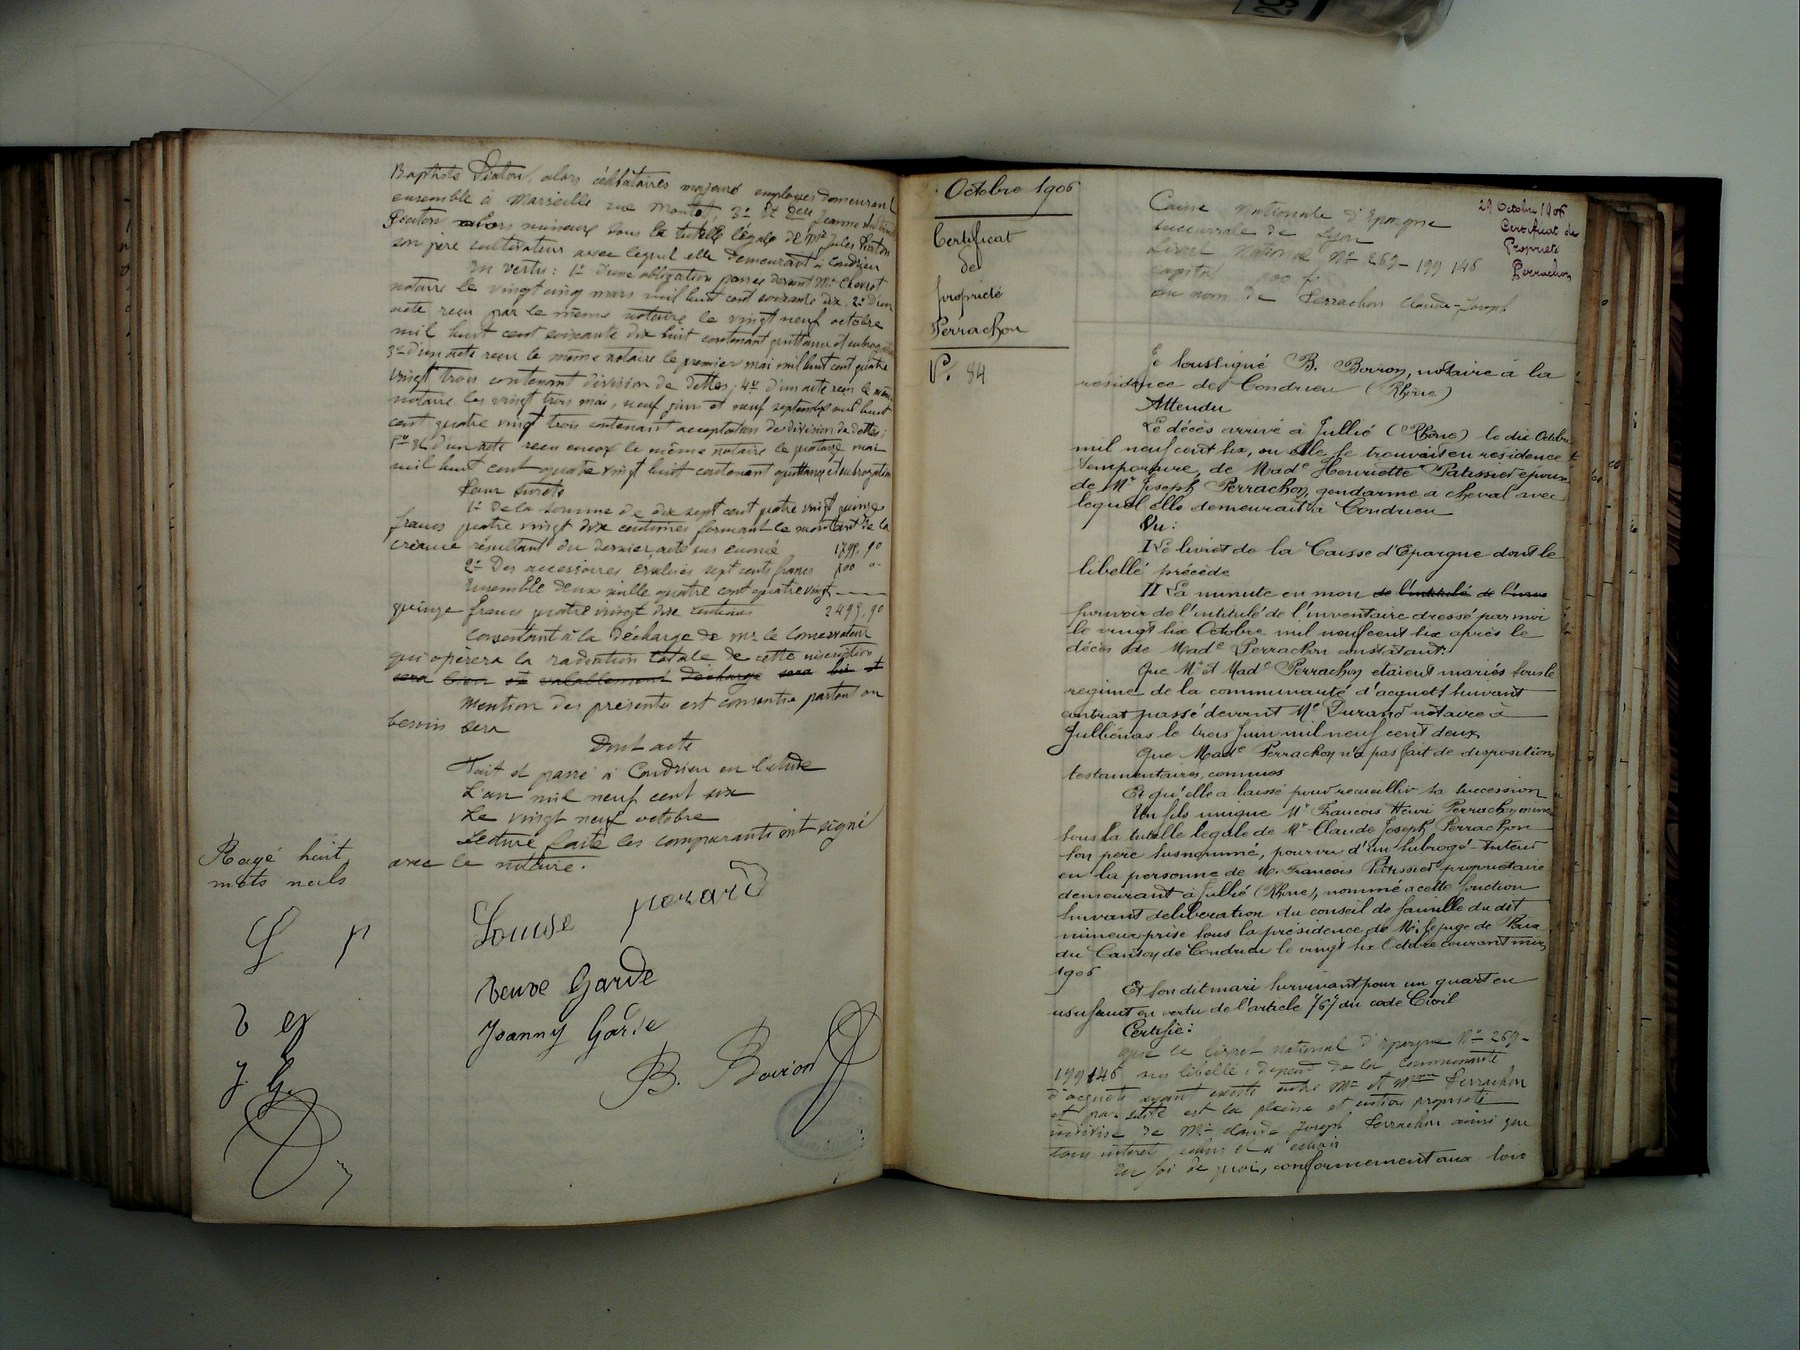 Baptiste Piaton, alors célibataires majeurs employés demeurant
ensemble à Marseille rue 3º Et Delle Jeanne
Piaton alors mineure sous la tutelle légale de Mr Jules Piaton
son père cultivateur avec lequel elle demeurant à Condrieu
En vertu : 1º d'une obligation passée devant Me
notaire le vingt cinq mars mil huit cent soixante dix : 2º d'un
acte reçu par le même notaire le vingt neuf octobre
mil huit cent soixante dix huit contenant quittance et subrogation
3º d'un acte reçu le même notaire le premier mai mil huit cent quatre
vingt trois contenant division de dettes ; 4º d'un acte reçu le même
notaire les vingt trois mai, neuf juin et neuf septembre mil huit
cent quatre vingt trois contenant acceptation de division de dettes ;
d'un acte reçu encore le même notaire le quatorze mai
mil huit cent quatre vingt huit contenant quittance et subrogation
Pour sûreté
1º De la somme de dix sept cent quatre vingt quinze
francs quatre vingt dix centimes formant le montant de la
créance résultant du dernier acte sus énoncé 1795.90
2º Des accessoires évalués sept cents francs 700 "
Ensemble deux mille quatre cent quatre vingt
quinze francs quatre vingt dix centimes 2495.90
Consentant à la décharge de Mr le Conservateur
qui opérera la radiation totale de cette inscription
sera bien et valablement déchargé sera bien et
Mention des présentes est consentie partout où
besoin sera
Dont acte
Fait et passé à Condrieu en l'étude
L'an mil neuf cent six
Le vingt neuf octobre
Lecture faite les comparants ont signé
avec le notaire.
Rayé huit
mots nuls
Louise
veuve Garde
Joanny Garde
B. Boiron
Octobre 1906
Certificat
de
propriété
Perrachon
Nº 84
29 Octobre 1906
Certificat de
Propriété
Perrachon
Caisse Nationale d'Epargne
succursale de Lyon
Livret National Nº 269-199 146
capital
au nom de Perrachon Claude-Joseph
Je soussigné B. Boiron, notaire à la
résidence de Condrieu (Rhône)
Attendu
Le décès arrivé à Jullié (Rhône) le dix Octobre
mil neuf cent six, où elle se trouvait en résidence
temporaire, de Made Henriette Patissier épouse
de Mr Joseph Perrachon, gendarme à cheval avec
lequel elle demeurait à Condrieu
Vu :
I Le livret de la Caisse d'Epargne dont le
libellé précède
II La minute en mon de l'intitulé de l'inve
pouvoir de l'intitulé de l'inventaire dressé par moi
le vingt six Octobre mil neuf cent six après le
décès de Made Perrachon constatant :
Que Mr et Made Perrachon étaient mariés sous le
régime de la communauté d'acquets suivant
contrat passé devant Me Durand notaire à
Julliénas le trois Juin mil neuf cent deux,
Que Made Perrachon n'a pas fait de dispositions
testamentaires, connues
Et qu'elle a laissé pour recueillir sa succession
Un fils unique Mr François Henri Perrachon mineur
sous la tutelle légale de Mr Claude Joseph Perrachon
son père susnommé, pourvu d'un subrogé-tuteur
en la personne de Mr François Patissier propriétaire
demeurant à Jullié (Rhône), nommé à cette fonction
suivant délibération du conseil de famille du dit
mineur prise sous la présidence de Mr le juge de Paix
du Canton de Condrieu le vingt six Octobre courant mois
1906
Et son dit mari survivant pour un quart en
usufruit en vertu de l'article 767 du code Civil
Certifie :
que le livret national d'épargne Nº 269-
199146 sus libellé, dépend de la communauté
d'acquets ayant existé entre Mr et Mme Perrachon
et par suite est la pleine et entière propriété
indivise de Mr Claude Joseph Perrachon ainsi que
tous intérêts échus et à échoir
En foi de quoi, conformément aux lois